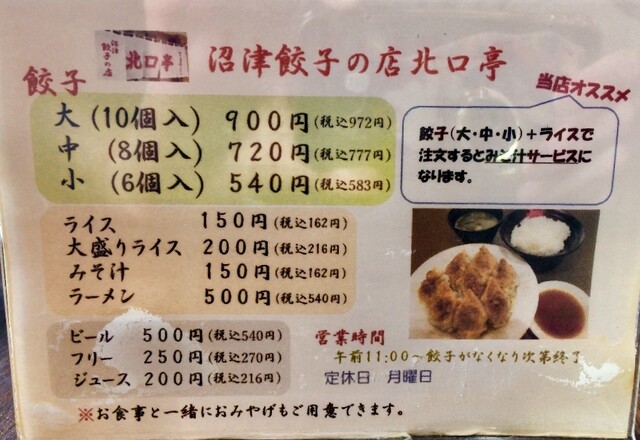 沼津
餃子の店
北口亭
沼津餃子の店北口亭
餃子
大 (10個入) 900円(税込972円)
中 (8個入) 720円(税込777円)
小 (6個入) 540円(税込583円)
当店オススメ
餃子(大・中・小)+ライスで
注文するとみそ汁サービスに
なります。
ライス 150円(税込162円)
大盛りライス 200円(税込216円)
みそ汁 150円(税込162円)
ラーメン 500円(税込540円)
ビール 500円(税込540円)
フリー 250円(税込270円)
ジュース 200円(税込216円)
営業時間
午前11:00〜餃子がなくなり次第終了
定休日 月曜日
※お食事と一緒におみやげもご用意できます。